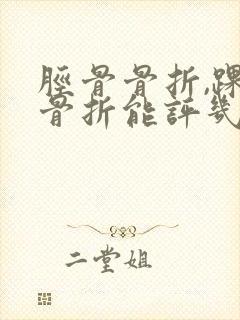 脛骨骨折,踝
骨折能評幾
二堂姐